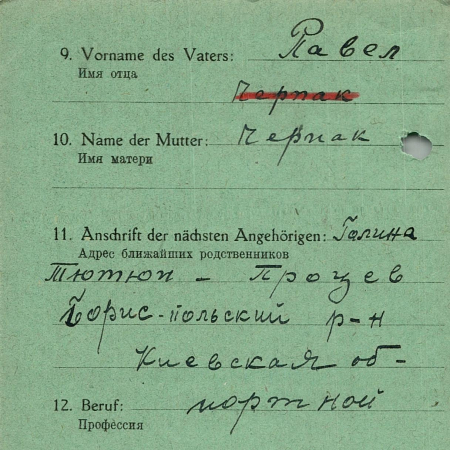 9. Vorname des Vaters: Павел
Имя отца
Черпак
10. Name der Mutter: Черпак
Имя матери
11. Anschrift der nächsten Angehörigen: Галина
Адрес ближайших родственников
Тютюн - Процев
Борис-польский р-н
Киевская об-
12. Beruf: портной
Профёссия